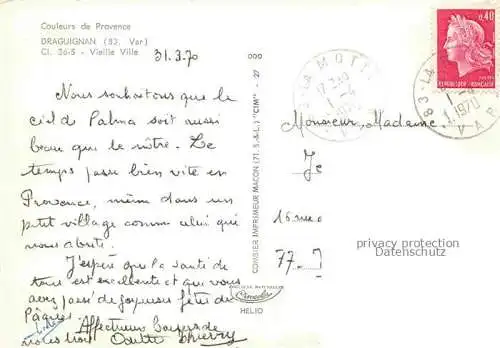 Couleurs de Provence
DRAGUIGNAN (83. Var)
Cl. 36-5 - Vieille Ville
31.3.70
Nous souhaitons que le
ciel de Palma soit aussi
beau que le nôtre. Le
temps passe bien vite en
Provence, même dans un
ptit village comme celui qui
nous abrite.
J'espère que la santé de
tous est excellente et que vous
avez passé de joyeuses fêtes de
Pâques.
Affectueux baisers de
nous trois Odette Thierry
COMBIER IMPRIMEUR MACON (71. S.-&-L.) "CIM"
HELIO
0,40
83 LA MOTTE
17 H 30
1-4
1970
VAR
Monsieur, Madame
Je
16 rue
77
privacy protection
Datenschutz